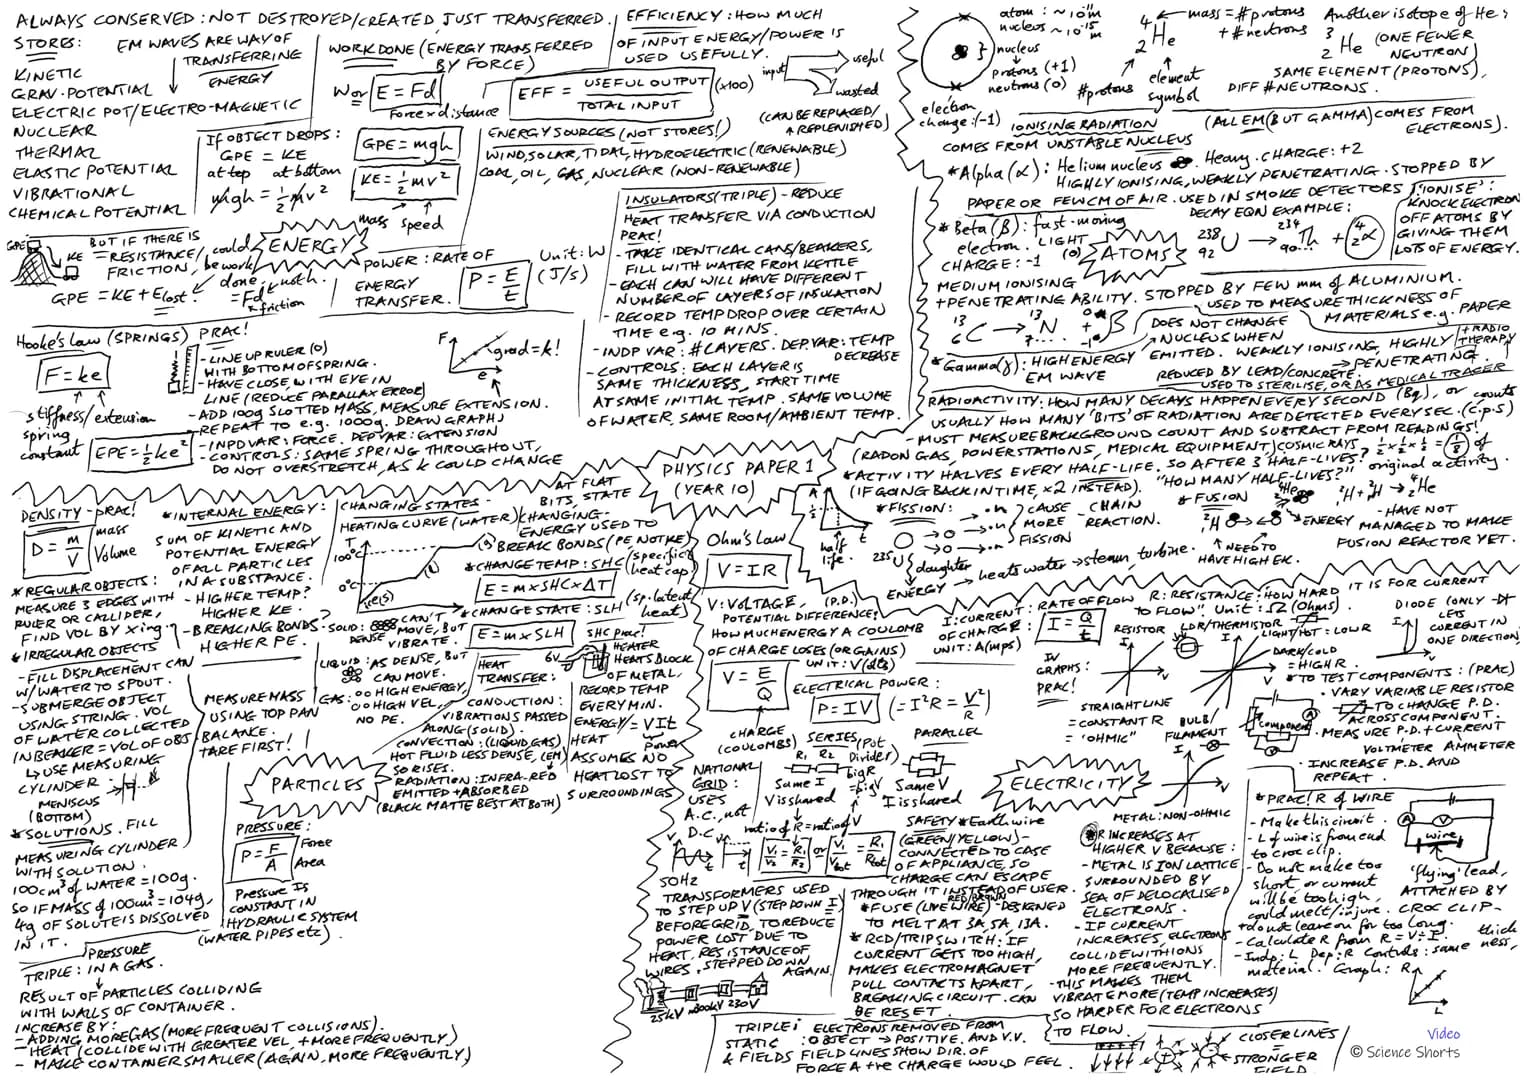 ALWAYS CONSERVED : NOT DESTROYED/CREATED, JUST TRANSFERRED.
STORES:
KINETIC
GRAV. POTENTIAL
ELECTRIC POT/ELECTRO-MAGNETIC
NUCLEAR
THERMAL
ELASTIC POTENTIAL
VIBRATIONAL
CHEMICAL POTENTIAL
EM WAVES ARE WAY OF
TRANSFERRING
ENERGY
WORK DONE (ENERGY TRANSFERRED
BY FORCE)
W or E = Fd
Force x distance
EFFICIENCY: HOW MUCH
OF INPUT ENERGY/POWER IS
USED USEFULLY.
EFF = USEFUL OUTPUT / TOTAL INPUT (x100)
input
useful
wasted
If OBJECT DROPS:
GPE = KE
at top at bottom
mgh = ½mv²
GPE = mgh
KE = ½mv²
mass speed
ENERGY SOURCES (NOT STORES!)
(CAN BE REPLACED/
REPLENISHED)
WIND, SOLAR, TIDAL, HYDROELECTRIC (RENEWABLE)
COAL, OIL, GAS, NUCLEAR (NON-RENEWABLE)
GPE
KE
BUT IF THERE IS
RESISTANCE/
FRICTION,
could
be work
done
GPE = KE + E lost.
= Fd
friction
ENERGY
POWER : RATE OF
ENERGY
TRANSFER.
P = E/t
Unit: W
(J/s)
INSULATORS (TRIPLE) - REDUCE
HEAT TRANSFER VIA CONDUCTION
PRAC!
- TAKE IDENTICAL CANS/BEAKERS,
FILL WITH WATER FROM KETTLE
- EACH CAN WILL HAVE DIFFERENT
NUMBER OF LAYERS OF INSULATION
- RECORD TEMP DROP OVER CERTAIN
TIME e.g. 10 MINS.
- INDP VAR: #LAYERS. DEP. VAR: TEMP
DECREASE
- CONTROLS: EACH LAYER IS
SAME THICKNESS, START TIME
AT SAME INITIAL TEMP. SAME VOLUME
OF WATER. SAME ROOM/AMBIENT TEMP.
Hooke's Law (SPRINGS) PRAC!
F = ke
stiffness/ extension
spring
constant
EPE = ½ke²
- LINE UP RULER (0)
WITH BOTTOM OF SPRING.
- HAVE CLOSE, WITH EYE IN
LINE (REDUCE PARALLAX ERROR)
- ADD 100g SLOTTED MASS, MEASURE EXTENSION.
- REPEAT TO e.g. 1000g. DRAW GRAPH
- INPD VAR: FORCE. DEP VAR: EXTENSION
- CONTROLS: SAME SPRING THROUGHOUT,
DO NOT OVERSTRETCH, AS k COULD CHANGE
F
grad = k!
e
PHYSICS PAPER 1
(YEAR 10)
atom: ~ 10⁻¹⁰m
nucleus ~ 10⁻¹⁵m
nucleus
protons (+1)
neutrons (0)
electron
charge: (-1)
⁴₂He
mass = #protons
+ #neutrons
#protons
element
symbol
Another isotope of He:
³₂He (ONE FEWER
NEUTRON)
SAME ELEMENT (PROTONS),
DIFF #NEUTRONS.
IONISING RADIATION (ALL EM (BUT GAMMA) COMES FROM
ELECTRONS).
COMES FROM UNSTABLE NUCLEUS
* Alpha (α): Helium nucleus. Heavy. CHARGE: +2
HIGHLY IONISING, WEAKLY PENETRATING. STOPPED BY
PAPER OR FEW CM OF AIR. USED IN SMOKE DETECTORS
'IONISE':
KNOCK ELECTRON
OFF ATOMS BY
GIVING THEM
LOTS OF ENERGY.
DECAY EQN EXAMPLE:
²³⁸₉₂U → ²³⁴₉₀Th + ⁴₂α
* Beta (β): fast-moving
electron. LIGHT
CHARGE: -1
MEDIUM IONISING
+ PENETRATING ABILITY. STOPPED BY FEW mm OF ALUMINIUM.
USED TO MEASURE THICKNESS OF
MATERIALS e.g. PAPER
ATOMS
¹³₆C → ¹³₇N + ⁰₋₁β
DOES NOT CHANGE
NUCLEUS WHEN
* Gamma (γ): HIGH ENERGY EMITTED. WEAKLY IONISING, HIGHLY
EM WAVE
PENETRATING.
REDUCED BY LEAD/CONCRETE.
USED TO STERILISE, OR AS MEDICAL TRACER
+ RADIO
THERAPY
RADIOACTIVITY: HOW MANY DECAYS HAPPEN EVERY SECOND (Bq), or counts
USUALLY HOW MANY 'BITS' OF RADIATION ARE DETECTED EVERY SEC. (c.p.s)
- MUST MEASURE BACKGROUND COUNT AND SUBTRACT FROM READINGS!
(RADON GAS, POWER STATIONS, MEDICAL EQUIPMENT) COSMIC RAYS
* ACTIVITY HALVES EVERY HALF-LIFE. SO AFTER 3 HALF-LIVES? ½ x ½ x ½ = ⅛ of
original activity.
(IF GOING BACK IN TIME, x2 INSTEAD). "HOW MANY HALF-LIVES?"
A
half
life.
t
* FISSION:
CAUSE
MORE
FISSION
- CHAIN
REACTION.
²³⁵U
daughter
ENERGY → heats water → steam turbine.
* FUSION
⁴He
²H
ENERGY
NEED TO
HAVE HIGH EK.
²H + ²H → ⁴₂He
- HAVE NOT
MANAGED TO MAKE
FUSION REACTOR YET.
DENSITY - PRAC!
D = m/V
mass
Volume
* REGULAR OBJECTS:
MEASURE 3 EDGES WITH
RULER OR CALLIPER,
FIND VOL BY Xing
* IRREGULAR OBJECTS
- FILL DISPLACEMENT CAN
W/ WATER TO SPOUT.
- SUBMERGE OBJECT
USING STRING. VOL
OF WATER COLLECTED
IN BEAKER = VOL OF OBJ
↳ USE MEASURING
CYLINDER
MENISCUS
(BOTTOM)
* SOLUTIONS. FILL
MEASURING CYLINDER
WITH SOLUTION.
100cm³ of WATER = 100g.
SO IF MASS of 100cm³ = 104g,
4g OF SOLUTE IS DISSOLVED
IN IT.
MEASURE MASS
USING TOP PAN
BALANCE.
TARE FIRST!
* INTERNAL ENERGY:
SUM OF KINETIC AND
POTENTIAL ENERGY
OF ALL PARTICLES
IN A SUBSTANCE.
- HIGHER TEMP?
HIGHER KE.
- BREAKING BONDS?
HIGHER PE.
CHANGING STATES -
HEATING CURVE (WATER)
T
100°C
0°C
ice (s)
AT FLAT
BITS, STATE
CHANGING -
ENERGY USED TO
BREAK BONDS (PE, NOT KE)
* CHANGE TEMP: SHC (specific
heat cap)
E = m x SHC x ΔT
* CHANGE STATE: SLH (sp. latent
heat)
E = m x SLH
SOLID: CAN'T
DENSE MOVE, BUT
VIBRATE.
LIQUID: AS DENSE, BUT
CAN MOVE.
GAS: HIGH ENERGY,
HIGH VEL,
NO PE.
HEAT
TRANSFER:
CONDUCTION:
VIBRATIONS PASSED
ALONG (SOLID).
CONVECTION: (LIQUID, GAS)
HOT FLUID LESS DENSE,
SO RISES. (EM)
RADIATION: INFRA-RED
EMITTED + ABSORBED
(BLACK MATTE BEST AT BOTH)
SHC prac!
6V
HEATER
HEATS BLOCK
OF METAL.
RECORD TEMP
EVERY MIN.
ENERGY = VIt
HEAT Power
ASSUMES NO
HEAT LOST TO
SURROUNDINGS
PARTICLES
PRESSURE:
P = F/A
Force
Area
Pressure Is
CONSTANT IN
HYDRAULIC SYSTEM
(WATER PIPES etc).
PRESSURE
TRIPLE: IN A GAS.
RESULT OF PARTICLES COLLIDING
WITH WALLS OF CONTAINER.
INCREASE BY:
- ADDING MORE GAS (MORE FREQUENT COLLISIONS).
- HEAT (COLLIDE WITH GREATER VEL, + MORE FREQUENTLY)
- MAKE CONTAINER SMALLER (AGAIN, MORE FREQUENTLY)
Ohm's Law
V = IR
V: VOLTAGE, (P.D.)
POTENTIAL DIFFERENCE:
HOW MUCH ENERGY A COULOMB
OF CHARGE LOSES (OR GAINS)
UNIT: V (olts)
V = E/Q
CHARGE
(COULOMBS)
I: CURRENT: RATE OF FLOW
OF CHARGE:
I = Q/t
UNIT: A (mps)
R: RESISTANCE: HOW HARD IT IS FOR CURRENT
TO FLOW. Unit: Ω (Ohms).
ELECTRICAL POWER:
P = IV (= I²R = V²/R)
IV
GRAPHS:
PRAC!
RESISTOR
I
V
STRAIGHT LINE
= CONSTANT R
= "OHMIC"
LDR/THERMISTOR
LIGHT/HOT: LOW R
DARK/COLD
= HIGH R.
DIODE (ONLY
LETS
CURRENT IN
ONE DIRECTION)
BULB/
FILAMENT
METAL: NON-OHMIC
* TO TEST COMPONENTS: (PRAC)
- VARY VARIABLE RESISTOR
TO CHANGE P.D.
ACROSS COMPONENT.
- MEASURE P.D. + CURRENT
VOLTMETER AMMETER
- INCREASE P.D. AND
REPEAT.
COMPONENT
A
V
SERIES (Pot
Divider)
R₁ R₂
Same I
V is shared
big R
= big V
ratio of R = ratio of V
V₁/V₂ = R₁/R₂ or V₁/Vtot = R₁/Rtot
PARALLEL
Same V
I is shared
NATIONAL
GRID:
USES
A.C., not
D.C.
50Hz
TRANSFORMERS USED
TO STEP UP V (STEP DOWN I)
BEFORE GRID, TO REDUCE
POWER LOST DUE TO
HEAT, RESISTANCE OF
WIRES, STEPPED DOWN
AGAIN.
25kV 230V
SAFETY * Earth wire
(GREEN/YELLOW) -
CONNECTED TO CASE
OF APPLIANCE, SO
CHARGE CAN ESCAPE
THROUGH IT INSTEAD OF USER.
RED/BROWN
* FUSE (LIVE WIRE) - DESIGNED
TO MELT AT 3A, 5A, 13A.
* RCD/TRIP SWITCH: IF
CURRENT GETS TOO HIGH,
MAKES ELECTROMAGNET
PULL CONTACTS APART,
BREAKING CIRCUIT. CAN
BE RESET.
ELECTRICITY
* R INCREASES AT
HIGHER V BECAUSE:
- METAL IS ION LATTICE
SURROUNDED BY
SEA OF DELOCALISED
ELECTRONS.
- IF CURRENT
INCREASES, ELECTRONS
COLLIDE WITH IONS
MORE FREQUENTLY.
- THIS MAKES THEM
VIBRATE MORE (TEMP INCREASES)
SO HARDER FOR ELECTRONS
TO FLOW.
* PRAC! R OF WIRE
- Make this circuit.
- L of wire is from end
to croc clip.
- Do not make too
short, or current
will be too high,
could melt/injure.
+ do not leave on for too long.
- Calculate R from R = V ÷ I.
- Indp: L Dep: R Controls: same thick
ness,
material. Graph: R
L
wire
'flying' lead,
ATTACHED BY
CROC CLIP
TRIPLE:
STATIC
& FIELDS
ELECTRONS REMOVED FROM
OBJECT → POSITIVE. AND V.V.
FIELD LINES SHOW DIR. OF
FORCE A +ve CHARGE WOULD FEEL.
CLOSER LINES
= STRONGER
FIELD
Video
© Science Shorts